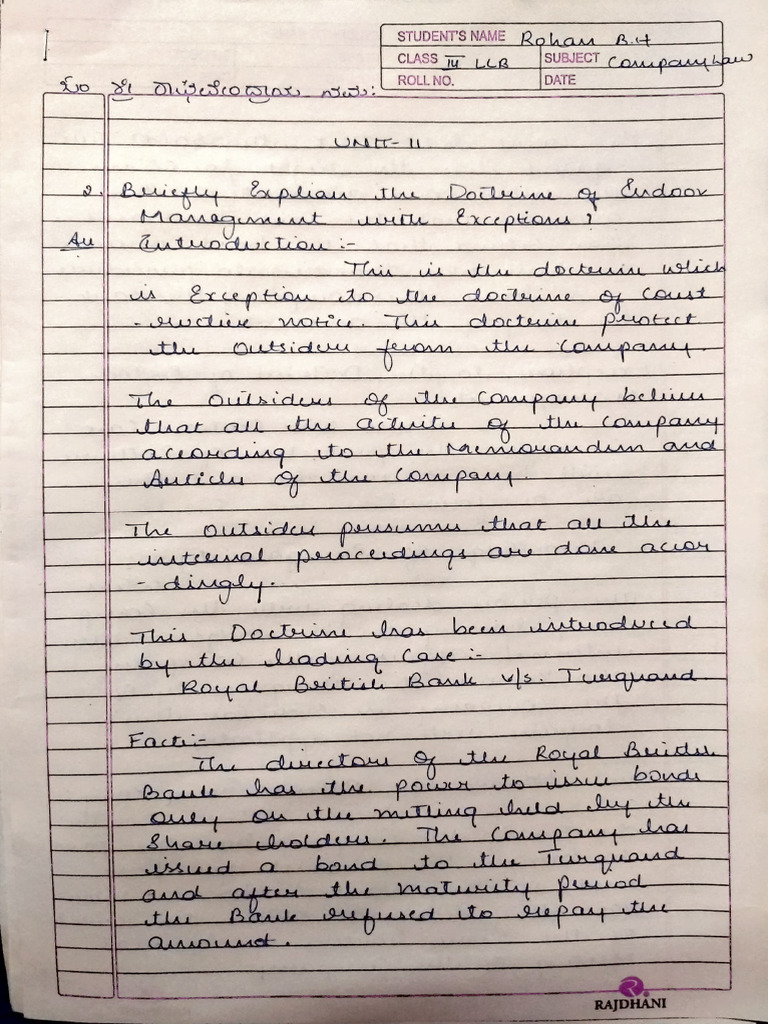 STUDENT'S NAME Rohan B.H
CLASS III LLB SUBJECT Company Law
ROLL NO. DATE
ಓಂ ಶ್ರೀ ರಾಘವೇಂದ್ರಾಯ ನಮಃ
UNIT-II
2. Briefly Explian the Doctrine of Endoor
Management with Exceptions?
Ans Introduction:-
This is the docterine which
is Exception to the doctrine of const
-ructive notice. This doctrine protect
the outsiders from the company.
The outsiders of the company believes
that all the activites of the company
according to the Memorandum and
Articles of the company.
The outsiders presumes that all the
internal proceedings are done accor
-dingly.
This Doctrine has been introduced
by the leading case:-
Royal British Bank v/s. Turquand
Facts:-
The directors of the Royal British
Bank has the power to issue bonds
only on the meeting held by the
Share holders. The company has
issued a bond to the Turquand
and after the maturity period
the Bank refused to repay the
amount.
RAJDHANI